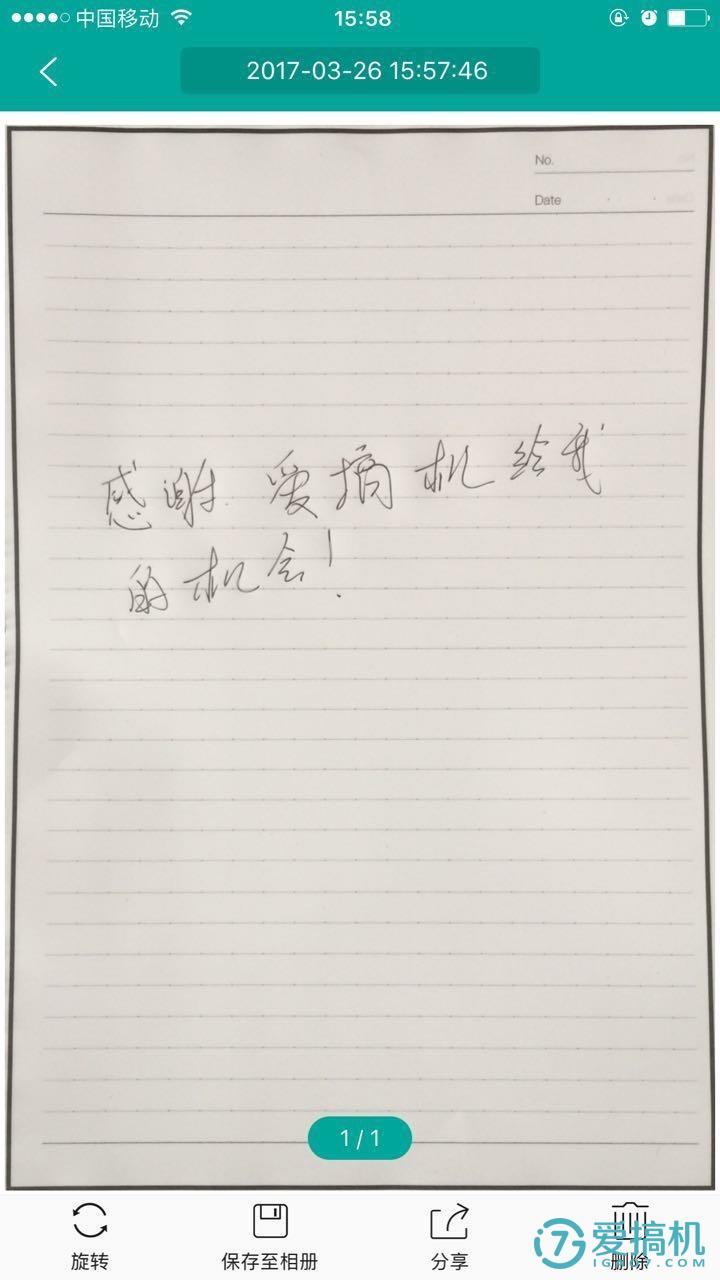 中国移动 15:58
2017-03-26 15:57:46
No.
Date
感谢 爱搞机给我
的机会!
1 / 1
旋转 保存至相册 分享 删除
爱搞机
IGAO7.COM